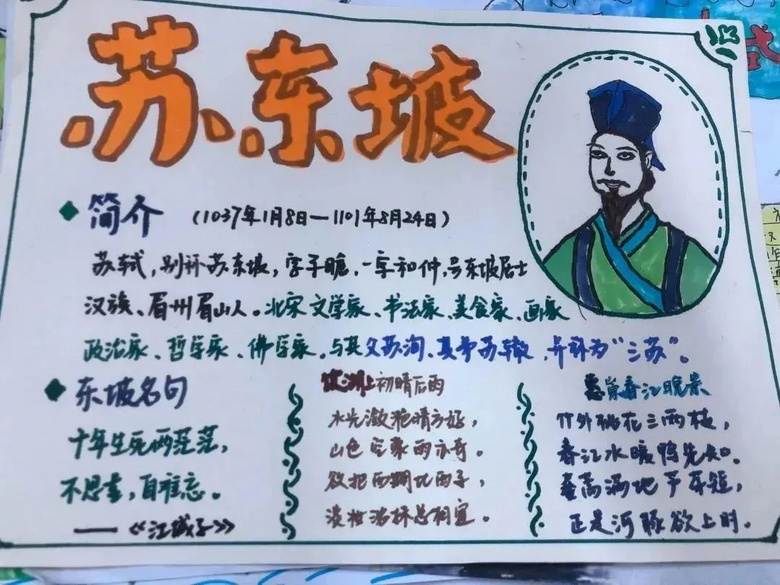 苏东坡
简介 (1037年1月8日—1101年8月24日)
苏轼，别称苏东坡，字子瞻，一字和仲，号东坡居士
汉族、眉州眉山人。北宋文学家、书法家、美食家、画家
政治家、哲学家、佛学家、与其父苏洵、其弟苏辙，并称为“三苏”。
东坡名句
十年生死两茫茫，
不思量，自难忘。
——《江城子》
饮湖上初晴后雨
水光潋滟晴方好，
山色空蒙雨亦奇。
欲把西湖比西子，
淡妆浓抹总相宜。
惠崇春江晚景
竹外桃花三两枝，
春江水暖鸭先知。
蒌蒿满地芦芽短，
正是河豚欲上时。